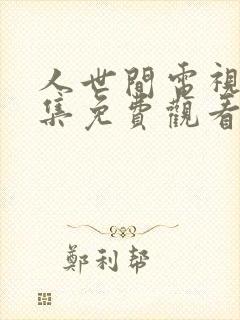 人世間電視
集免費觀看
鄭利幫